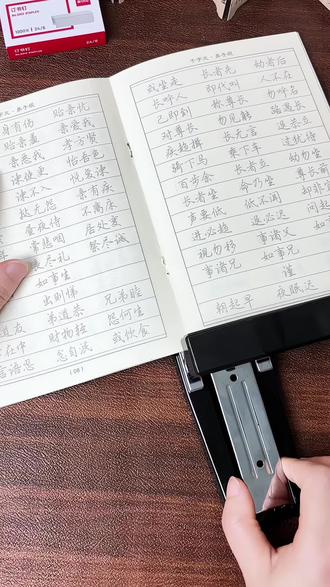 订书钉
1000只 24/6
24/6
订书钉
千字文·弟子规
身有伤 贻亲忧
贻亲羞 亲爱我
亲恶我 孝方贤
谏使更 怡吾色
谏不入 悦复谏
挞无怨 亲有疾
昼夜侍 不离床
常悲咽 居处变
丧尽礼 祭尽诚
如事生
出则悌 兄弟睦
道友 弟道恭
在中 财物轻 怨何生
言语忍 忿自泯 或饮食
(08)
千字文·弟子规
或坐走 长者先 幼者后
长呼人 即代叫 人不在
己即到 称尊长 勿呼名
对尊长 勿见能 路遇长
疾趋揖 长无言 退恭立
骑下马 乘下车 过犹待
百步余 长者立 幼勿坐
长者坐 命乃坐 尊长前
声要低 低不闻 却非
进必趋 退必迟 问起
视勿移 事诸父 如
事诸兄 如事兄
谨
朝起早 夜眠迟